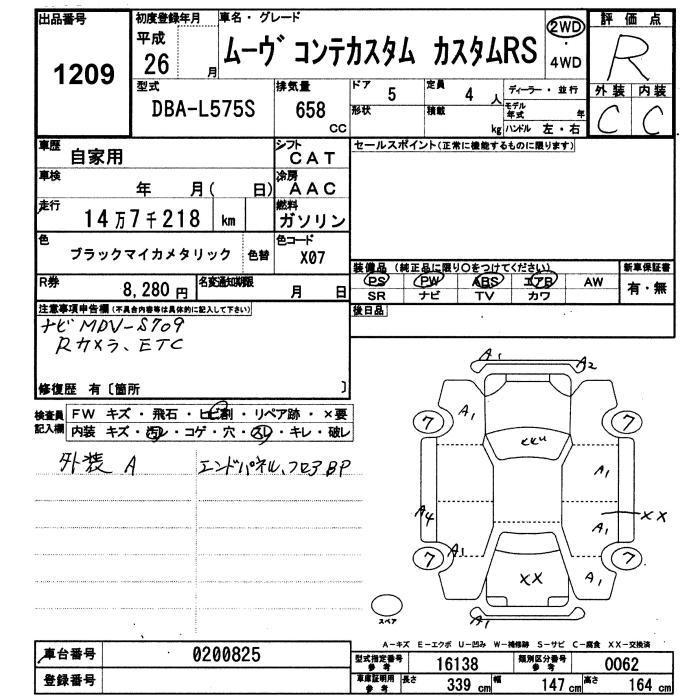 出品番号 1209
初度登録年月 平成 26 月
車名・グレード ムーヴ コンテカスタム カスタムRS
2WD・4WD
評価点 R
外装 C 内装 C
型式 DBA-L575S
排気量 658 CC
ドア 5 定員 4 人
形状 積載 kg
ディーラー・並行
モデル年式 年
ハンドル 左・右
車歴 自家用
シフト CAT
セールスポイント(正常に機能するものに限ります)
車検 年 月( 日)
冷房 AAC
走行 14万7千218 km
燃料 ガソリン
色 ブラックマイカメタリック 色替
色コード X07
装備品 (純正品に限り○をつけてください) 新車保証書
PS PW ABS エアB AW 有・無
SR ナビ TV カワ
R券 8,280円 名変通知期限 月 日
後日品
注意事項申告欄(不具合内容等は具体的に記入して下さい)
ナビ MDV-S709
Rカメラ、ETC
修復歴 有〔箇所 〕
検査員記入欄
FW キズ・飛石・ヒビ割・リペア跡・×要
内装 キズ・汚レ・コゲ・穴・スレ・キレ・破レ
外装 A エンドパネル、フロアBP
A1 A2
A1
7 7
A1
A4
A1 XX
A1
7 7
XX A1
A1
スペア
A-キズ E-エクボ U-凹み W-補修跡 S-サビ C-腐食 XX-交換済
車台番号 0200825
登録番号
型式指定番号参考 16138 類別区分番号参考 0062
車庫証明用参考 長さ 339 cm 幅 147 cm 高さ 164 cm